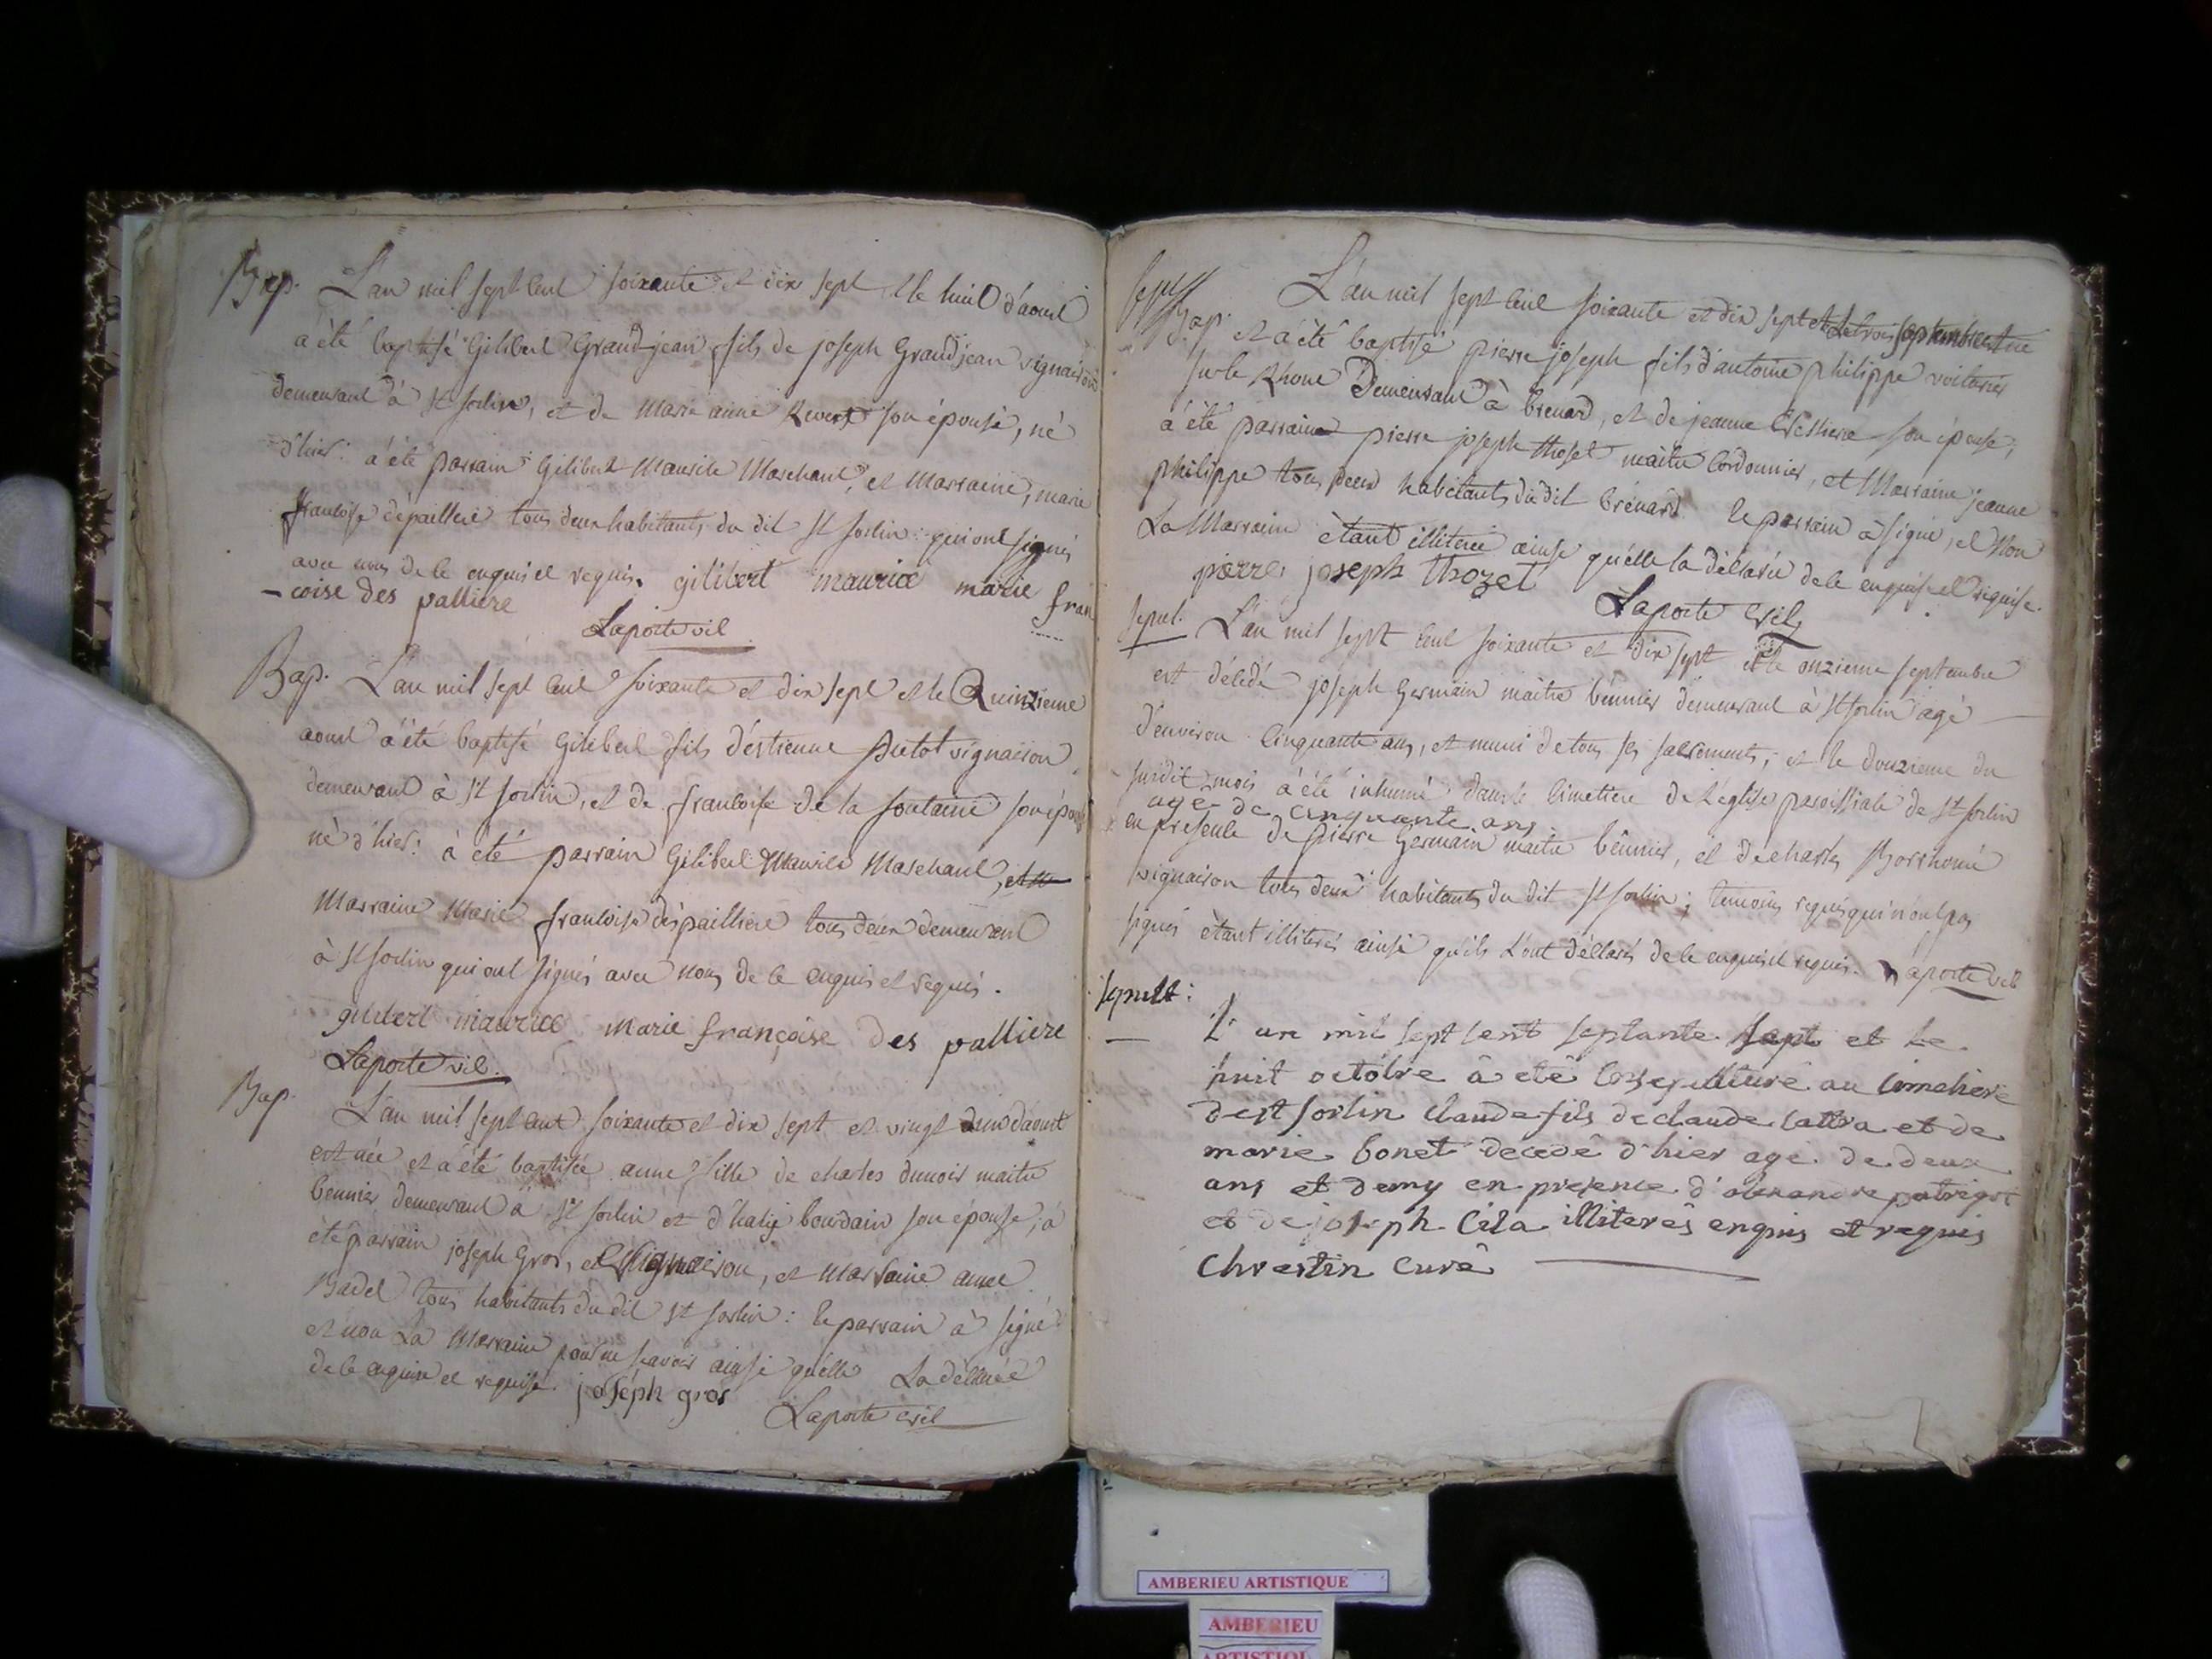 Bap. L'an mil sept cent soixante et dix sept et le huit d'aoust
a été baptisé Gilibert Grandjean fils de joseph Grandjean vigneron
demeurant à St Sorlin, et de Marie anne Revert son épouse, né
d'hier: à été parrain Gilibert Maurice Marchant, et Marraine, marie
françoise depailliere tous deux habitants du dit St Sorlin qui ont signés
avec nous de ce enquis et requis. gilibert maurice marie fran
-coise des palliere
Laporte vic
Bap. L'an mil sept cent soixante et dix sept et le Quinzieme
aout à été baptisé Gilibert fils d'éstienne vignairon
demeurant à St Sorlin, et de françoise de la fontaine son épouse
né d'hier: à été parrain Gilibert Maurice Marchant,
Marraine Marie françoise dépailliere tous deux demeurant
à St Sorlin qui ont signés avec nous de ce enquis et requis.
gilibert maurice marie françoise des palliere
Laporte vic.
Bap. L'an mil sept cent soixante et dix sept et vingt d'aoust
est née et a été baptisée anne fille de charles dunoir maitre
bennier demeurant à St Sorlin et d' bourdain son épouse, à
été parrain joseph Gros, vignairon, et Marraine anne
Badel tous habitants du dit St Sorlin: le parrain à signé
et non La Marraine pour ne scavoir ainsi qu'elle La déclaré
de ce enquise et requise. joséph gros
Laporte vic
Bap. L'an mil sept cent soixante et dix sept et le trois septembre est né
et a été baptisé pierre joseph fils d'antoine philippe voiturier
sur le Rhone Demeurant à brenard, et de jeanne son épouse;
à été parrain pierre joseph thoset maitre Cordonnier, et Marraine jeanne
philippe tous deux habitants du dit brénard. le parrain à signé, et Non
La Marraine étant illiterée ainsi qu'elle la déclarée de ce enquise et requise.
pierre joseph thozet
Laporte vic
Sepul. L'an mil sept cent soixante et dix sept et le onzieme septembre
est décédé joséph Germain maitre bénnier demeurant à St Sorlin agé
d'environ Cinquante ans, et muni de tous ses sacrements; et le douzieme du
susdit mois à été inhumé dans le Cimettiere de L'église paroissiale de St Sorlin
agé de cinquante ans
en présence de pierre Germain maitre bénnier, et de charles Borrhomé
vignairon tous deux habitants du dit St Sorlin; temoins requis qui n'ont pas
signés étant illiterés ainsi qu'ils L'ont déclaré de ce enquis et requis. Laporte vic
sepult:
L'an mil sept sent septante sept et le
huit octobre à eté ensepulturé au cimetiere
de st sorlin claude fils de claude et de
marie bonet decedé d'hier agé de deux
ans et demy en presence d'alexandre
et de joseph Cila illiterés enquis et requis
Chrestin curé
AMBERIEU ARTISTIQUE
AMBERIEU
ARTISTIQUE